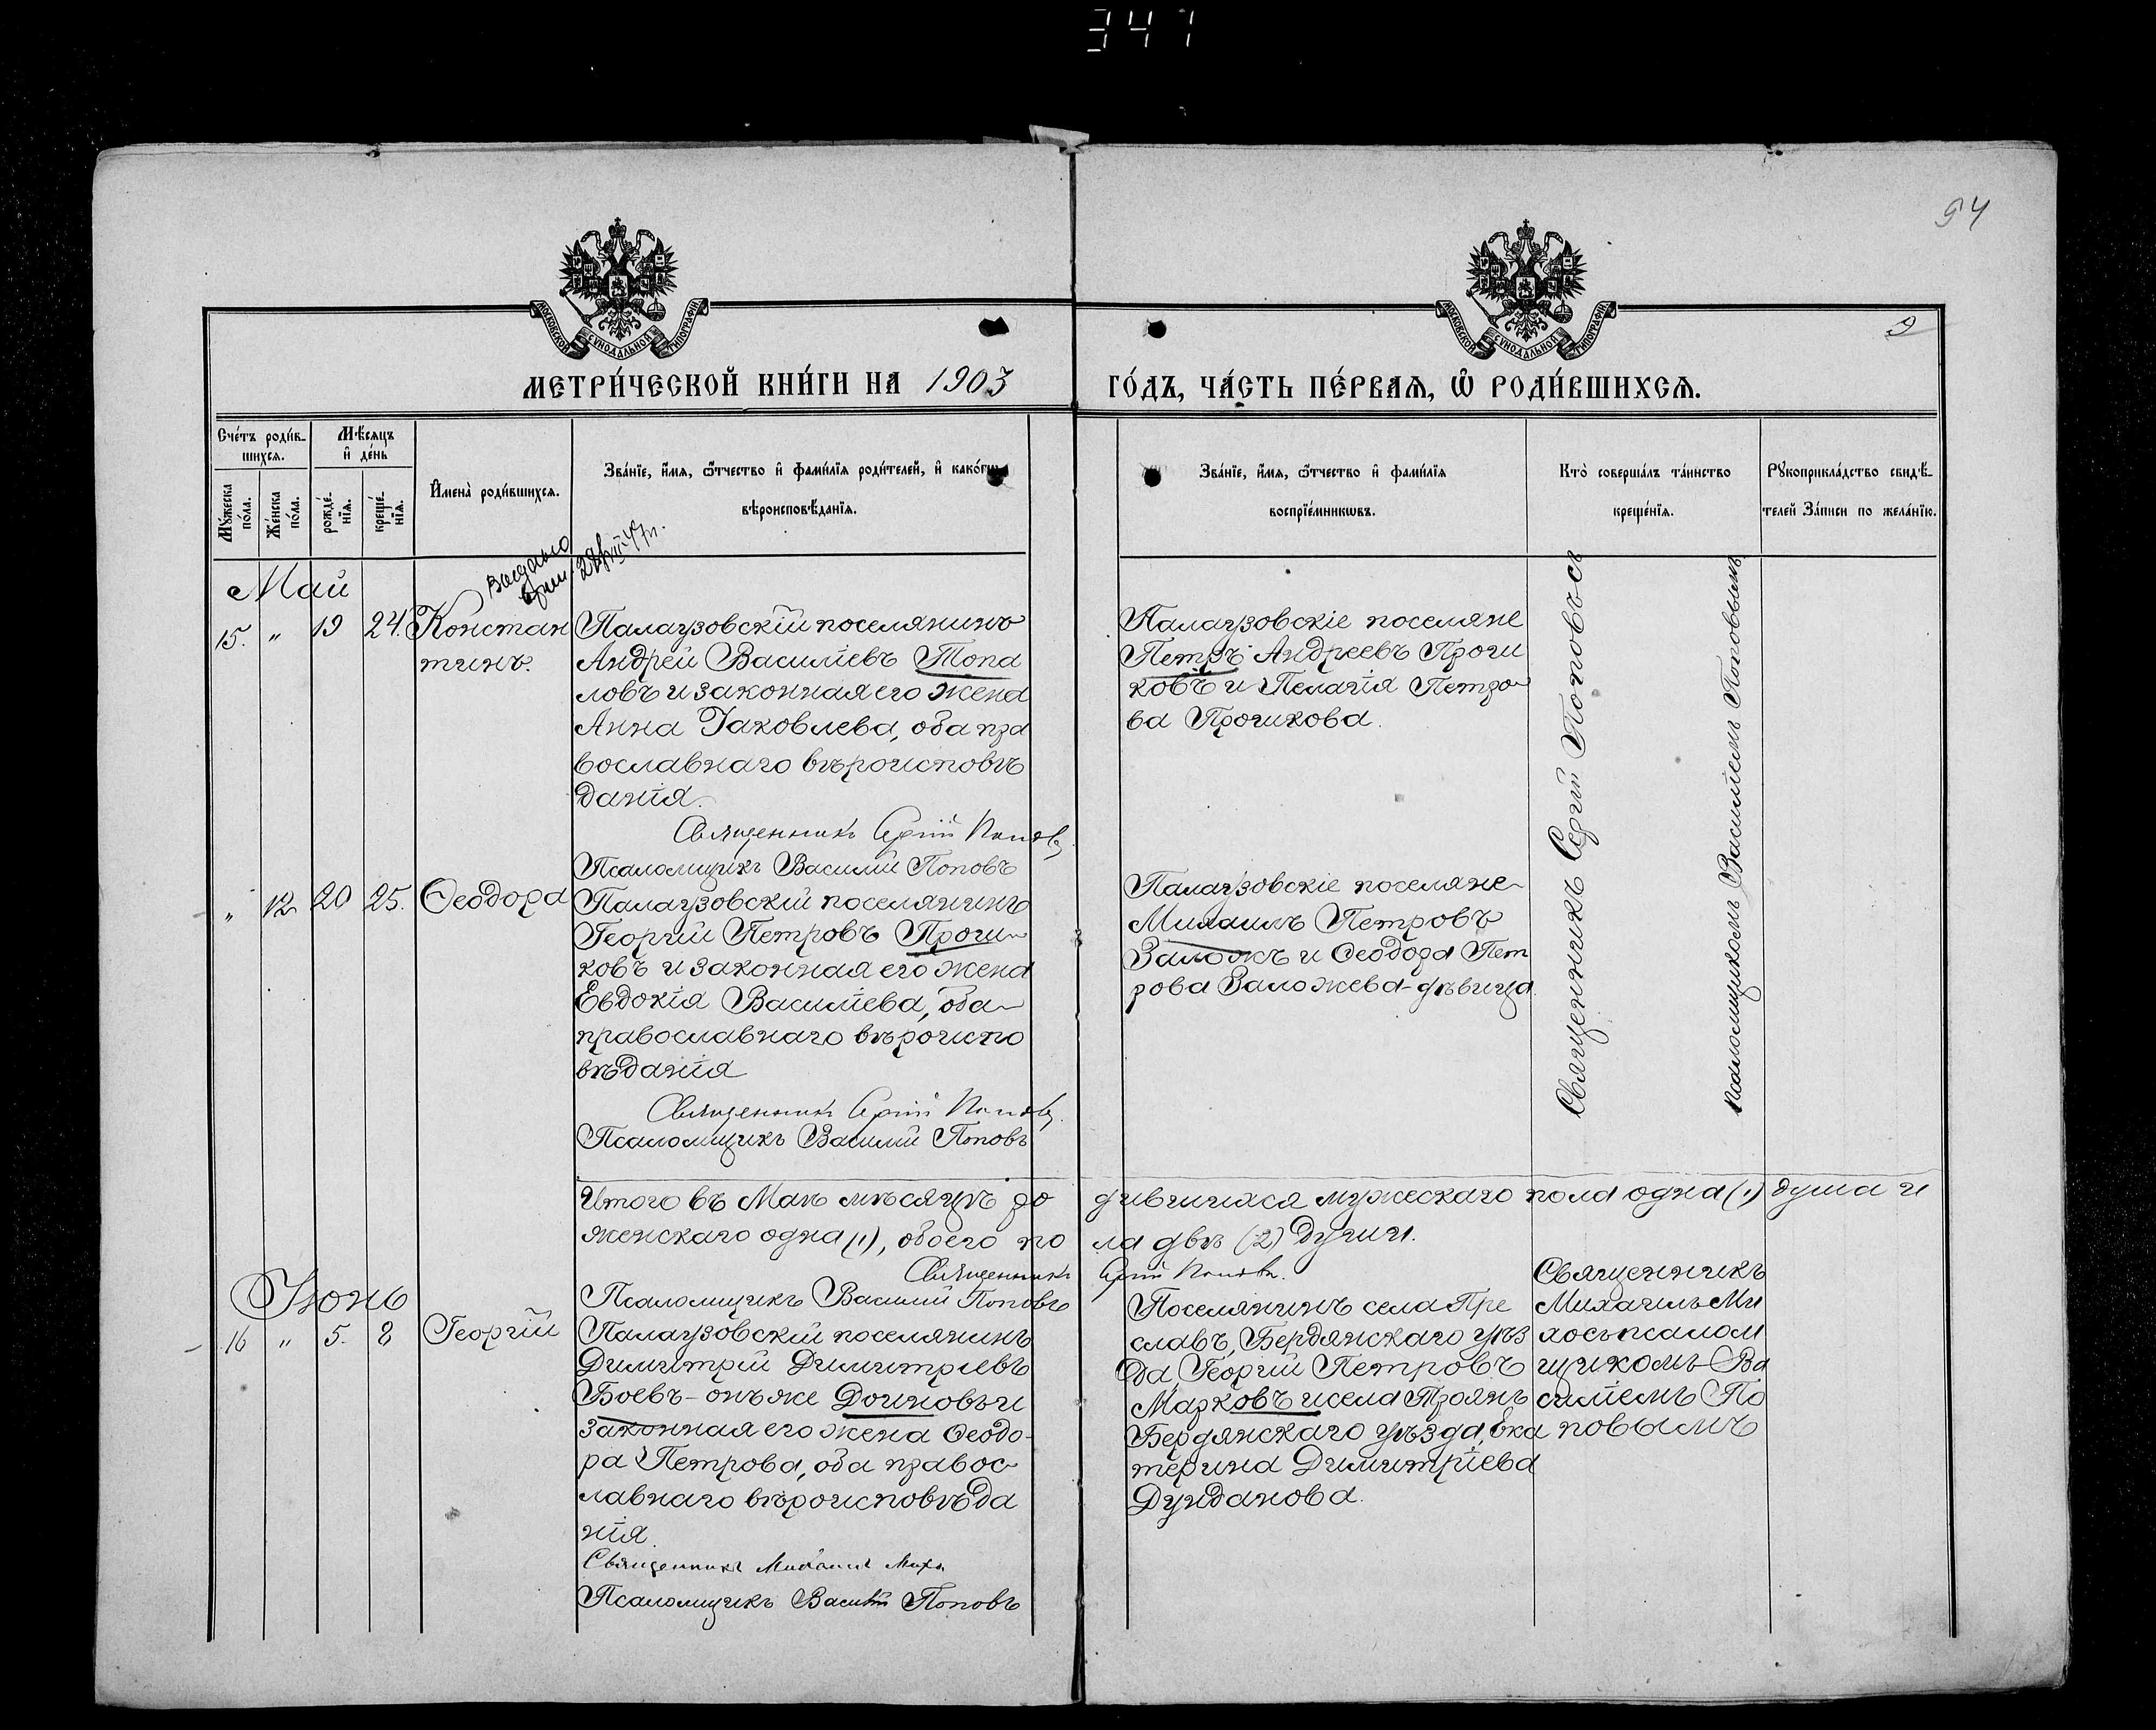 347
94
МОСКОВСКОЙ СѴНОДАЛЬНОЙ ТИПОГРАФІИ
МОСКОВСКОЙ СѴНОДАЛЬНОЙ ТИПОГРАФІИ
9
МЕТРИ́ЧЕСКОЙ КНИ́ГИ НА 1903
ГО́ДЪ, ЧА́СТЬ ПЕ́РВАѦ, Ѽ РОДИ́ВШИХСѦ.
Сче́тъ роди́в-
шихсѧ.
Мѣ́сяцъ
и҆ де́нь
Мꙋ́жеска
по́ла.
Же́нска
по́ла.
рожде́-
нїѧ.
креще́-
нїѧ.
И҆мена̀ роди́вшихсѧ.
Зва́нїе, и҆́мѧ, ѻ҆́тчество и҆ фами́лїѧ роди́телей, и҆ како́гѡ
вѣроисповѣ́данїѧ.
Зва́нїе, и҆́мѧ, ѻ҆́тчество и҆ фами́лїѧ
воспрїе́мникѡвъ.
Кто̀ соверша́лъ та́инство
креще́нїѧ.
Рꙋкоприкла́дство свидѣ́-
телей За́писи по жела́нїю.
Май
15. " 19 24. Констан
тинъ.
Палаузовскій поселянинъ
Андрей Василіевъ Топа
ловъ и законная его жена
Анна Іаковлева, оба пра
вославнаго вѣроисповѣ
данія.
Священникъ Сергій Поповъ
Псаломщикъ Василій Поповъ
Палаузовскіе поселяне
Петръ Андреевъ Прочи
ковъ и Пелагія Петро
ва Прочикова.
Священникъ Сергій Поповъ съ
псаломщикомъ Василіемъ Поповымъ
" 12 20 25. Ѳеодора
Палаузовскій поселянинъ
Георгій Петровъ Прочи
ковъ и законная его жена
Евдокія Василіева, оба
православнаго вѣроиспо
вѣданія
Священникъ Сергій Поповъ
Псаломщикъ Василій Поповъ
Палаузовскіе поселяне
Михаилъ Петровъ
Заложъ и Ѳеодора Пет
рова Заложева-дѣвица
Итого въ Маѣ мѣсяцѣ ро дившихся мужескаго пола одна (1) душа и
женскаго одна (1), обоего по ла двѣ (2) души.
Священникъ Сергій Поповъ.
Псаломщикъ Василій Поповъ
Іюнь
16 " 5. 8 Георгій
Палаузовскій поселянинъ
Димитрій Димитріевъ
Боевъ-онъ же Дойновъ и
законная его жена Ѳеодо-
ра Петрова, оба правос
лавнаго вѣроисповѣда
нія.
Священникъ Михаилъ Михо
Псаломщикъ Василій Поповъ
Поселянинъ села Пре
славъ, Бердянскаго уѣз
да, Георгій Петровъ
Марковъ и села Троянъ
Бердянскаго уѣзда, Ека
терина Димитріева
Дунданова.
Священникъ
Михаилъ Ми
хо съ псалом
щикомъ Ва
силіемъ По
повымъ